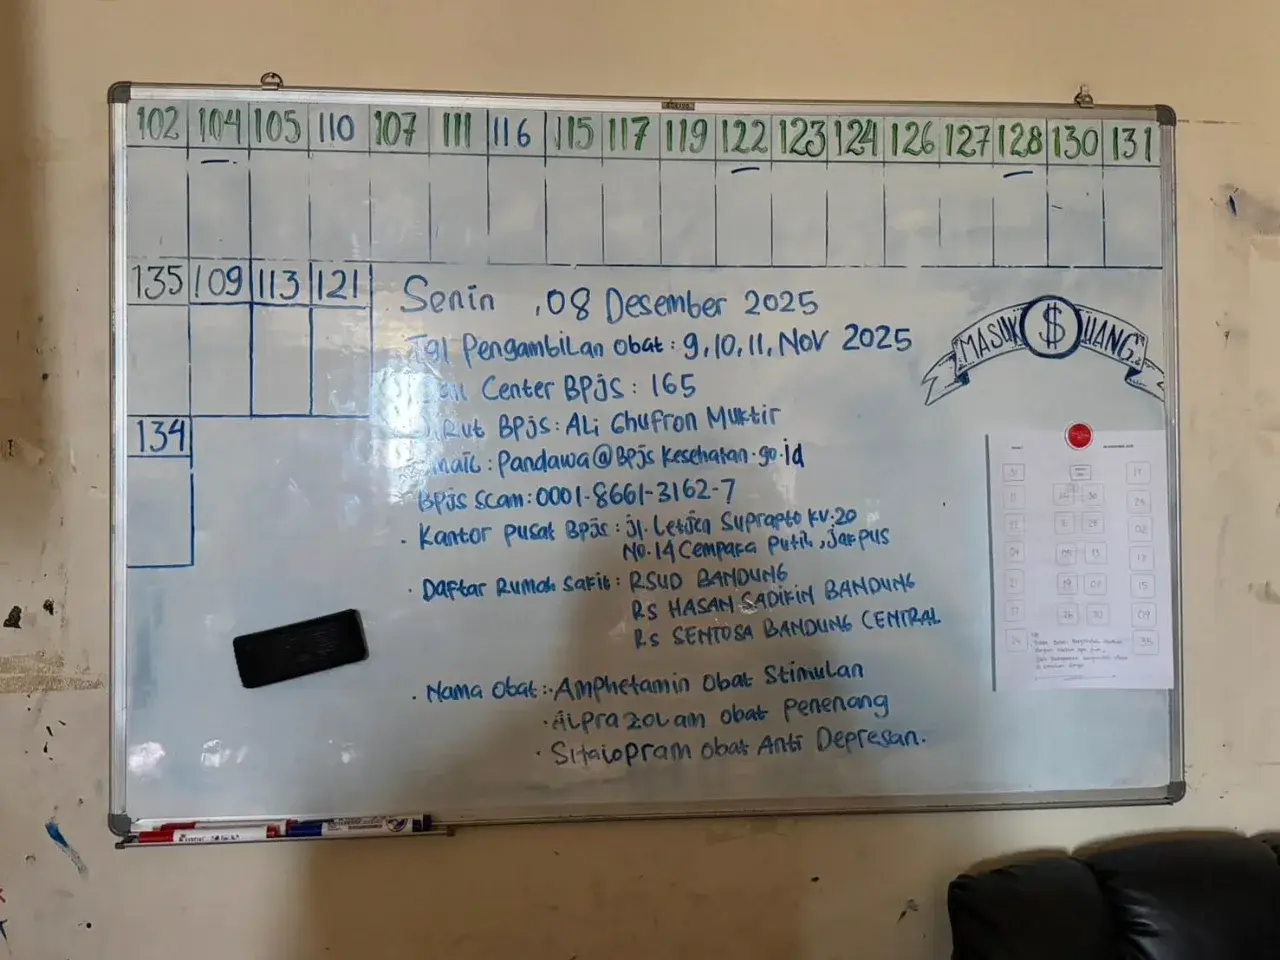 102 104 105 110 107 111 116 115 117 119 122 123 124 126 127 128 130 131
135 109 113 121
134
Senin ,08 Desember 2025
Tgl Pengambilan obat : 9, 10, 11, Nov 2025
Call Center BPjS : 165
Dirut BPjS : ALi Ghufron Muktir
Email : Pandawa@BPjs Kesehatan.go.id
BPjs Scam : 0001-8661-3162-7
. Kantor pusat BPjs : jl. Letjen Suprapto KV.20
No.14 Cempaka Putih, jakpus
. Daftar Rumah Sakit : RSUD BANDUNG
RS HASAN SADIKIN BANDUNG
RS SENTOSA BANDUNG CENTRAL
. Nama Obat : . Amphetamin Obat Stimulan
. Alprazolam obat Penenang
. Sitalopram obat Anti Depresan.
MASUK $ UANG